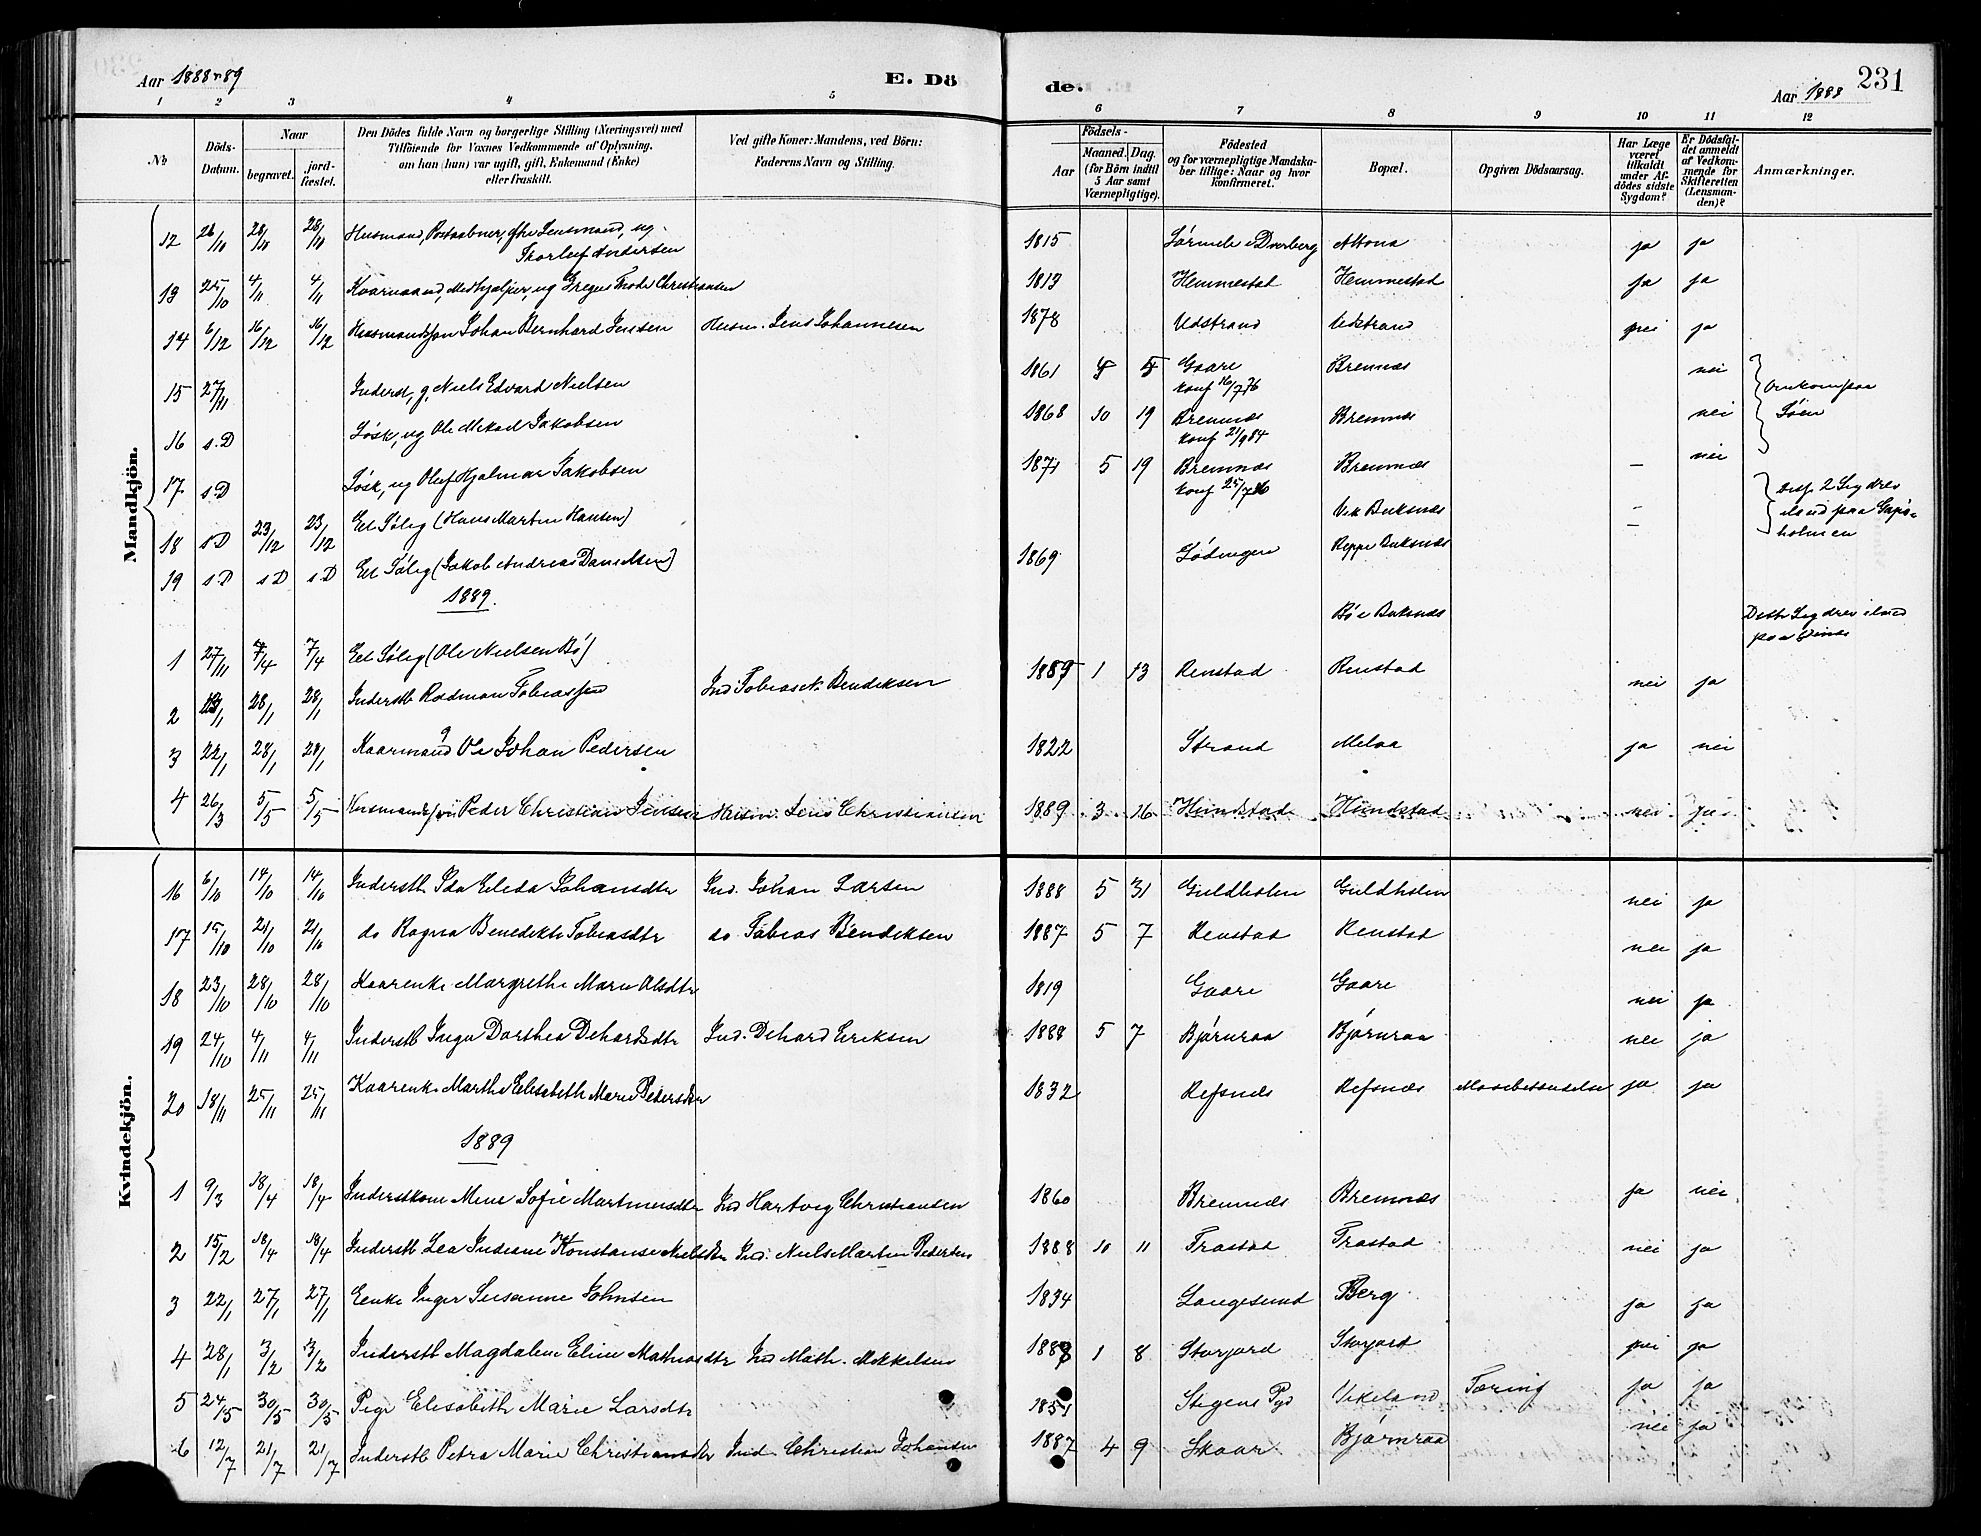 Aar 1888-89
E. Dö
de.
Aar 1888
231
1 2 3 4 5 6 7 8 9 10 11 12
No
Döds-Datum.
Naar
begravet.
jord-fæstet.
Den Dödes fulde Navn og borgerlige Stilling (Næringsvei) med
Tilföiende for Voxnes Vedkommende af Oplysning,
om han (hun) var ugift, gift, Enkemand (Enke)
eller fraskilt.
Ved gifte Koner: Mandens, ved Börn:
Faderens Navn og Stilling.
Födsels-
Aar
Maaned. Dag.
(for Börn indtil
5 Aar samt
Værnepligtige).
Födested
og for værnepligtige Mandska-
ber tillige: Naar og hvor
konfirmeret.
Bopæl.
Opgiven Dödsaarsag.
Har Læge
været
tilkaldt
under Af-
dödes sidste
Sygdom?
Er Dödsfal-
det anmeldt
af Vedkom-
mende for
Skifteretten
(Lensman-
den)?
Anmærkninger.
Mandkjön.
12 26/10 28/10 28/10 Husmand, Postaabner, fhv Lensmand, ug. 1815 Dverberg Altona ja ja
Thorleif Andersen
13 25/10 4/11 4/11 Kaarmand, Medhjælper, ug Gregus Thode Christiansen 1813 Hemmestad Hemmestad ja ja
14 6/12 16/12 16/12 Husmandssøn Johan Bernhard Jensen Husm. Jens Johannesen 1878 Vidstrand Vidstrand nei ja
15 27/11 Inderst, g, Niels Edvard Nielsen 1861 5 Gaare Bremnæs nei Omkom paa
konf 16/7 76
16 s.D Løsk, ug Ole Mikal Jakobsen 1868 10 19 Bremnæs Bremnæs nei Søen
konf 21/9 84
17 s.D Løsk, ug Oluf Hjalmar Jakobsen 1871 5 19 Bremnæs Bremnæs — nei
konf 25/7 86
18 s.D 23/12 23/12 Et Sølig (Hans Martin Hansen) Vik Buksnæs — disse 2 Lig drev
island paa Gapø-
holmen
19 s.D s.D s.D Et Sølig (Jakob Andreas Danielsen) 1869 Lødingen Reppe Buksnæs —
1889.
1 27/11 7/4 7/4 Et Sølig (Ole Nielsen Bø) Bø i Buksnæs Dette Lig drev iland
paa
2 28/1 28/1 Inderstb Rodman Tobiassen Ind Tobias N. Bendiksen 1889 1 13 Renstad Renstad nei ja
3 22/1 28/1 28/1 Kaarmand g Ole Johan Pedersen 1822 Strand Melaa ja nei
4 26/3 5/5 5/5 Husmandssøn Peder Christian Jensen Husm. Jens Christiansen 1889 3 16 Hundstad Hundstad nei ja
Kvindekjön.
16 6/10 14/10 14/10 Inderstb Ida Elida Johansdtr Ind. Johan Larsen 1888 5 31 Guldholm Guldholm nei ja
17 15/10 21/10 21/10 do Ragna Benedikte Tobiasdtr do Tobias Bendiksen 1887 5 7 Renstad Renstad nei ja
18 23/10 28/10 28/10 Kaarenke Margrethe Marie Olsdtr 1819 Gaare Gaare nei ja
19 24/10 4/11 4/11 Inderstb Inga Dorthea Dehardsdtr Ind. Dehard Eriksen 1888 5 7 Bjørnraa Bjørnraa nei ja
20 18/11 25/11 25/11 Kaarenke Marthe Elisabeth Marie Pedersdtr 1832 Refsnæs Refsnæs ja ja
1889
1 9/3 18/4 18/4 Inderstkone Mine Sofie Martinusdtr Ind Hartvig Christiansen 1860 Bremnæs Bremnæs ja nei
2 15/2 18/4 18/4 Inderstb Lea Indiane Konstanse Nielsdtr Ind. Niels Martin Pedersen 1888 10 11 Frostad Frostad nei ja
3 22/1 27/1 27/1 Enke Inger Susanne Johnsen 1834 Langesund Berg ja ja
4 28/1 3/2 3/2 Inderstb Magdalene Eline Mathiasdtr Ind Math. Mikkelsen 1888 1 8 Storjord Storjord nei ja
5 24/5 30/5 30/5 Pige Elisabeth Marie Larsdtr 1851 Stegens Pgd Vikeland Tæring ja ja
6 12/7 21/7 21/7 Inderstb Petra Marie Christiansdtr Ind Christian Johansen 1887 4 9 Skaar Bjørnraa nei ja